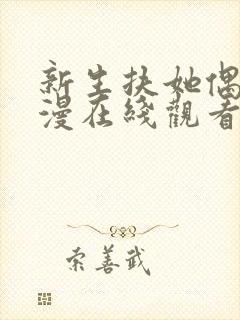 新生扶她偶
漫在綫觀看
索善武